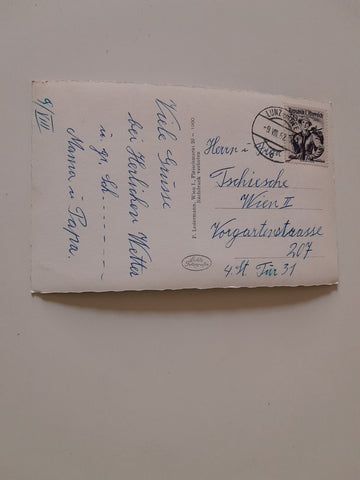 9/VIII
Viele Grüsse
bei Herlichen Wetter
u. gr. Sch.
Mama u Papa.
P. Ledermann, Wien I., Fleischmarkt 20 — 1950
Nachdruck verboten
Echte Photographie
LUNZ
-9. VIII. 52
Herrn u
Tschiesche
Wien II
Vorgartenstrasse
207
4. St Tür 31